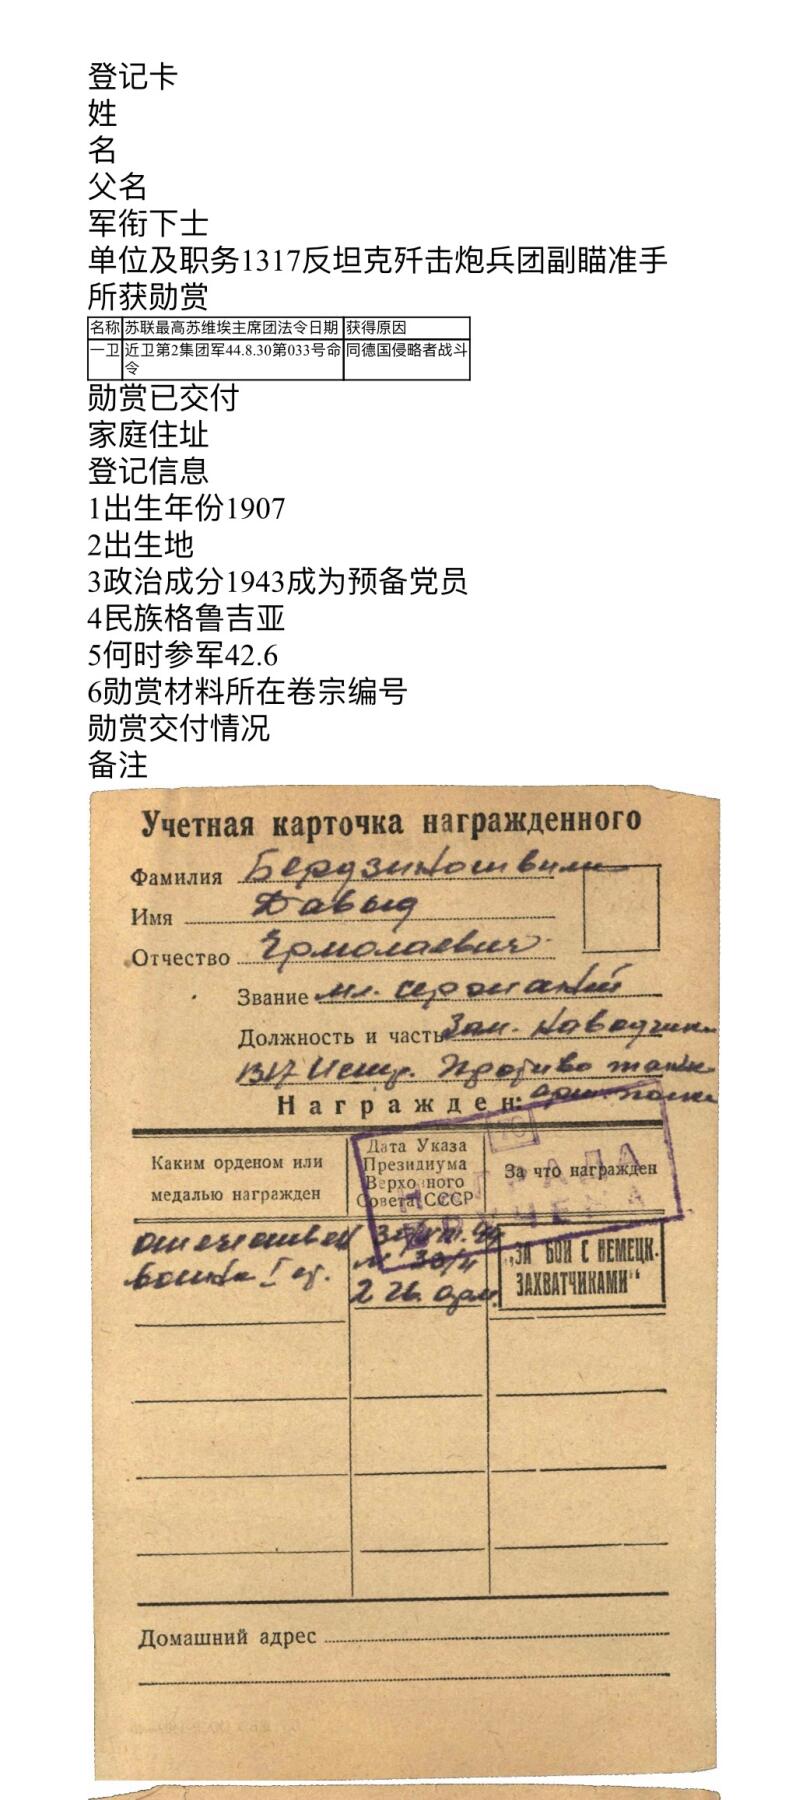 登记卡
姓
名
父名
军衔下士
单位及职务1317反坦克歼击炮兵团副瞄准手
所获勋赏
名称 苏联最高苏维埃主席团法令日期 获得原因
一卫 近卫第2集团军44.8.30第033号命令 同德国侵略者战斗
勋赏已交付
家庭住址
登记信息
1出生年份1907
2出生地
3政治成分1943成为预备党员
4民族格鲁吉亚
5何时参军42.6
6勋赏材料所在卷宗编号
勋赏交付情况
备注
Учетная карточка награжденного
Фамилия
Имя Давыд
Отчество Ермолаевич
Звание мл. сержант
Должность и часть Зам. наводчика
1317 Истр. Противо танк.
Награжден: арт. полк
НАГРАДА
ВРУЧЕНА
Каким орденом или медалью награжден
Дата Указа Президиума Верховного Совета СССР
За что награжден
отечествен война I ст.
2 гв. арм.
„ЗА БОИ С НЕМЕЦК. ЗАХВАТЧИКАМИ“
Домашний адрес